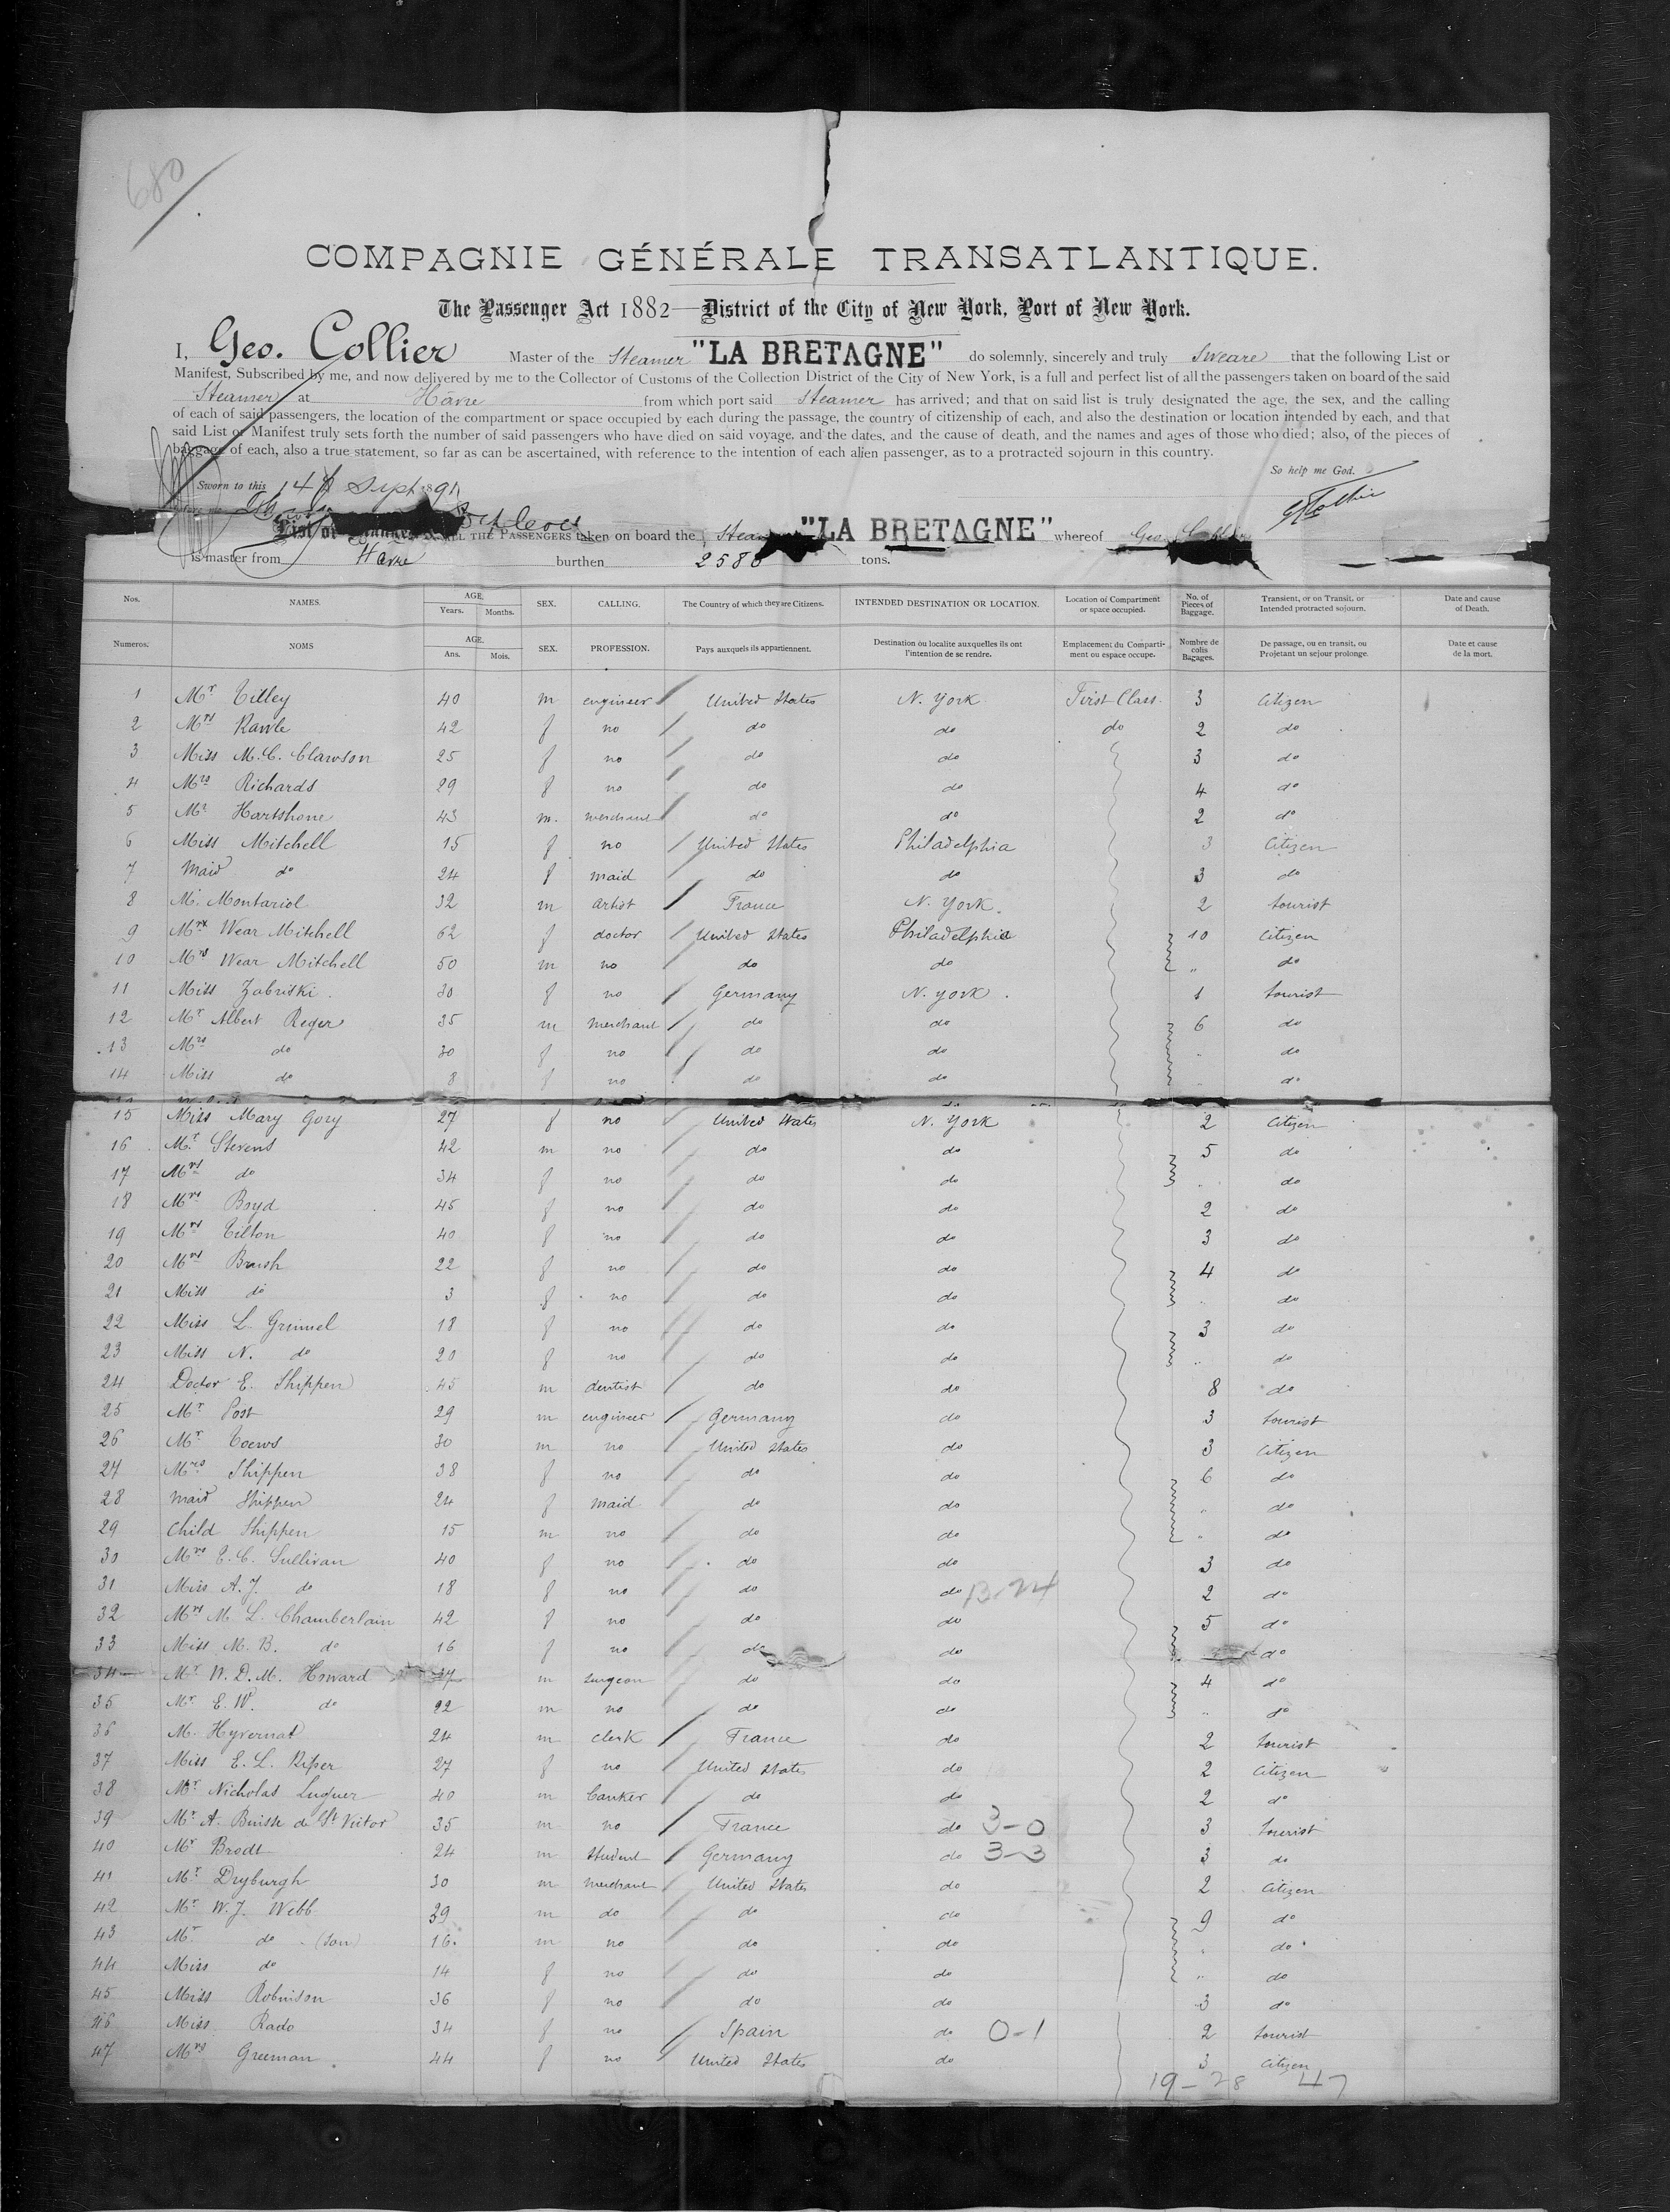 680
COMPAGNIE GÉNÉRALE TRANSATLANTIQUE.
The Passenger Act 1882—District of the City of New York, Port of New York.
I, Geo. Collier Master of the Steamer "LA BRETAGNE" do solemnly, sincerely and truly Sweare that the following List or
Manifest, Subscribed by me, and now delivered by me to the Collector of Customs of the Collection District of the City of New York, is a full and perfect list of all the passengers taken on board of the said
Steamer at Havre from which port said Steamer has arrived; and that on said list is truly designated the age, the sex, and the calling
of each of said passengers, the location of the compartment or space occupied by each during the passage, the country of citizenship of each, and also the destination or location intended by each, and that
said List or Manifest truly sets forth the number of said passengers who have died on said voyage, and the dates, and the cause of death, and the names and ages of those who died; also, of the pieces of
baggage of each, also a true statement, so far as can be ascertained, with reference to the intention of each alien passenger, as to a protracted sojourn in this country.
So help me God.
Sworn to this 14 Sept 1891
G Collier
List or ALL THE PASSENGERS taken on board the "LA BRETAGNE" whereof Geo.
is master from Havre burthen 2586 tons.
Nos. NAMES. AGE. Years. Months. SEX. CALLING. The Country of which they are Citizens. INTENDED DESTINATION OR LOCATION. Location of Compartment or space occupied. No. of Pieces of Baggage. Transient, or on Transit, or Intended protracted sojourn. Date and cause of Death.
Numeros. NOMS AGE. Ans. Mois. SEX. PROFESSION. Pays auxquels ils appartiennent. Destination ou localite auxquelles ils ont l'intention de se rendre. Emplacement du Compartiment ou espace occupe. Nombre de colis Bagages. De passage, ou en transit, ou Projetant un sejour prolonge. Date et cause de la mort.
1 Mr Tilley 40 m engineer United States N. York First Class. 3 Citizen
2 Mrs Rawle 42 f no do do do 2 do
3 Miss M. C. Clawson 25 f no do do 3 do
4 Mrs Richards 29 f no do do 4 do
5 Mr Hartshone 43 m. merchant do do 2 do
6 Miss Mitchell 15 f no United States Philadelphia 3 Citizen
7 Maid do 24 f maid do do 3 do
8 M. Montariol 32 m artist France N. York. 2 tourist
9 Mr Wear Mitchell 62 f doctor United States Philadelphia 10 Citizen
10 Mrs Wear Mitchell 50 m no do do " do
11 Miss Zabriski. 30 f no Germany N. York. 1 tourist
12 Mr Albert Reger 35 m merchant do do 6 do
13 Mrs do 30 f no do do " do
14 Miss do 8 f no do do " do
15 Miss Mary Gory 27 f no United States N. York 2 Citizen
16 Mr Stevens 42 m no do do 5 do
17 Mrs do 34 f no do do " do
18 Mrs Boyd 45 f no do do 2 do
19 Mrs Tilton 40 f no do do 3 do
20 Mrs Brush 22 f no do do 4 do
21 Miss do 3 f no do do " do
22 Miss L. Grinnel 18 f no do do 3 do
23 Miss N. do 20 f no do do " do
24 Doctor E. Shippen 45 m dentist do do 8 do
25 Mr Post 29 m engineer Germany do 3 tourist
26 Mr Toews 30 m no United States do 3 Citizen
27 Mrs Shippen 38 f no do do 6 do
28 maid Shippen 24 f maid do do " do
29 Child Shippen 15 m no do do " do
30 Mrs T. C. Sullivan 40 f no do do 3 do
31 Miss A. J. do 18 f no do do 13-24 2 do
32 Mrs M. L. Chamberlain 42 f no do do 5 do
33 Miss M. B. do 16 f no do do do
34 Mr W. D. M. Howard m surgeon do do 4 do
35 Mr E. W. do 22 m no do do " do
36 M. Hyvernat 24 m clerk France do 2 tourist
37 Miss E. L. Riper 27 f no United States do 2 Citizen
38 Mr Nicholas Luquer 40 m banker do do 2 do
39 Mr A. Buisse de St Victor 35 m no France do 3-0 3 tourist
40 Mr Brodt 24 m student Germany do 3-3 3 do
41 Mr Dryburgh 30 m merchant United States do 2 Citizen
42 Mr W. J. Webb 39 m do do do 9 do
43 Mr do (Son) 16. m no do do " do
44 Miss do 14 f no do do " do
45 Miss Robinson 36 f no do do 3 do
46 Miss Rado 34 f no Spain do 0-1 2 tourist
47 Mrs Greeman 44 f no United States do 3 Citizen
19-28 47